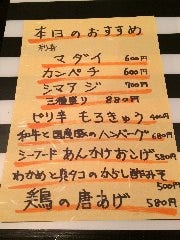 本日のおすすめ
刺身
マダイ 600円
カンパチ 600円
シマアジ 700円
三種盛り 880円
ピリ辛 もろきゅう 400円
和牛と国産豚のハンバーグ 680円
シーフードあんかけあつあげ 580円
わかめと真ダコのからし酢みそ
500円
鶏の唐あげ 580円